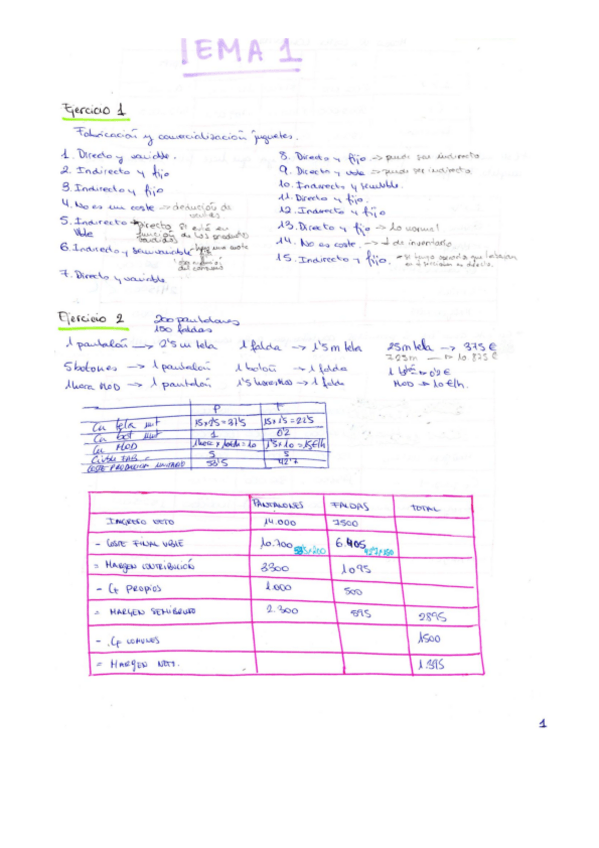 TEMA 1
Ejercicio 1
Fabricación y comercialización juguetes.
1. Directo y variable.
2. Indirecto y fijo
3. Indirecto y fijo
4. No es un coste -> deducción de
5. Indirecto -> Directo si está en
vble función de los productos
6. Indirecto y semivariable
7. Directo y variable
8. Directo y fijo -> puede ser indirecto
9. Directo y vble -> puede ser indirecto.
10. Indirecto y variable.
11. Directo y fijo.
12. Indirecto y fijo
13. Directo y fijo -> lo normal
14. No es coste. -> de inventario.
15. Indirecto y fijo.
Ejercicio 2 200 pantalones
150 faldas
1 pantalón -> 2'5 m tela 1 falda -> 1'5 m tela 25m tela -> 375 €
725m -> 10.875 €
5 botones -> 1 pantalón 1 botón -> 1 falda 1 -> 0'2 €
1 hora MOD -> 1 pantalón 1'5 horas MOD -> 1 falda MOD -> 10 €/h.
P F
Cu tela unit 15x2'5=37'5 15x1'5=22'5
Cu bot unit 1 0'2
Cu MOD =10 1'5x10=15€/h
5 5
COSTE PRODUCCIÓN UNITARIO 53'5 42'7
PANTALONES FALDAS TOTAL
INGRESO NETO 14.000 7500
- COSTE FINAL VBLE 10.700 53'5x200 6.405 42'7x150
= MARGEN CONTRIBUCIÓN 3300 1095
- Cf PROPIOS 1.000 500
= MARGEN SEMIBRUTO 2.300 595 2895
- Cf COMUNES 1500
= MARGEN NETO. 1.395
1